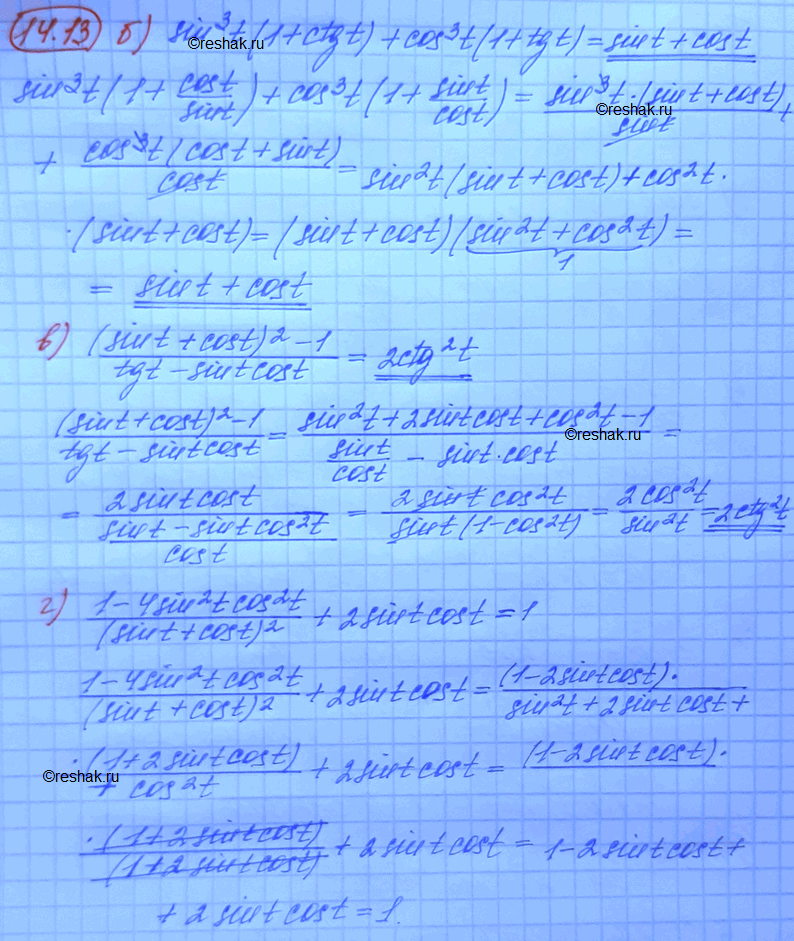 14.13 б) sin³t(1+ctgt)+cos³t(1+tgt)=sint+cost
©reshak.ru
sin³t(1+cost/sint)+cos³t(1+sint/cost)= sin³t·(sint+cost)/sint +
©reshak.ru
+ cos³t(cost+sint)/cost = sin²t(sint+cost)+cos²t·
·(sint+cost)=(sint+cost)(sin²t+cos²t)=
1
= sint+cost
в) ((sint+cost)²-1)/(tgt-sintcost) = 2ctg²t
((sint+cost)²-1)/(tgt-sintcost) = (sin²t+2sintcost+cos²t-1)/(sint/cost - sint·cost) =
©reshak.ru
= 2sintcost/((sint-sintcos²t)/cost) = 2sintcos²t/(sint(1-cos²t)) = 2cos²t/sin²t = 2ctg²t
г) (1-4sin²tcos²t)/(sint+cost)² + 2sintcost=1
(1-4sin²tcos²t)/(sint+cost)² + 2sintcost = (1-2sintcost)·/sin²t+2sintcost+
·(1+2sintcost)/+cos²t + 2sintcost = (1-2sintcost)·
©reshak.ru
·(1+2sintcost)/(1+2sintcost) + 2sintcost = 1-2sintcost+
+2sintcost=1.